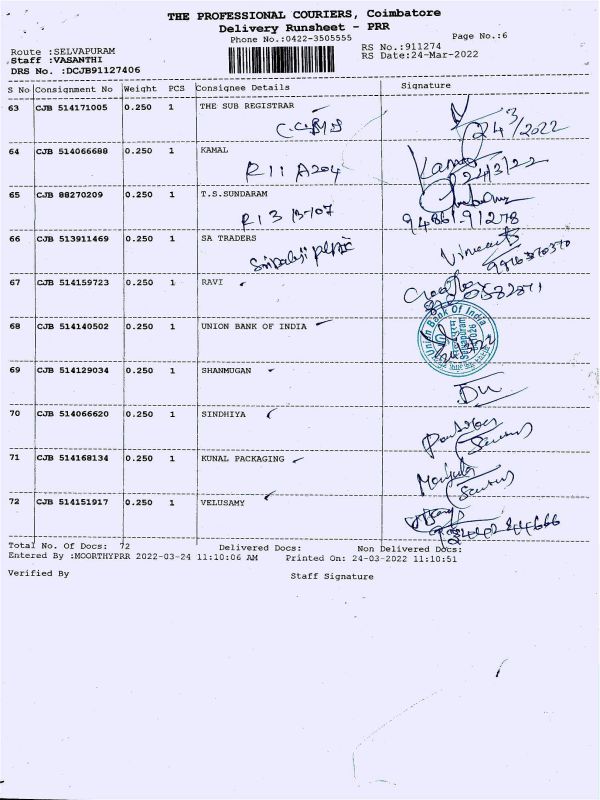 THE PROFESSIONAL COURIERS, Coimbatore
Delivery Runsheet - PRR
Page No.:6
Phone No.:0422-3505555
Route :SELVAPURAM
RS No.:911274
Staff :VASANTHI
RS Date:24-Mar-2022
DRS No. :DCJB91127406
S No Consignment No Weight PCS Consignee Details Signature
63 CJB 514171005 0.250 1 THE SUB REGISTRAR
24/3/2022
64 CJB 514066688 0.250 1 KAMAL
R11 A204
24/3/22
65 CJB 88270209 0.250 1 T.S.SUNDARAM
R13 B-107
94861-91278
66 CJB 513911469 0.250 1 SA TRADERS
67 CJB 514159723 0.250 1 RAVI
68 CJB 514140502 0.250 1 UNION BANK OF INDIA
Union Bank Of India
69 CJB 514129034 0.250 1 SHANMUGAN
70 CJB 514066620 0.250 1 SINDHIYA
71 CJB 514168134 0.250 1 KUNAL PACKAGING
72 CJB 514151917 0.250 1 VELUSAMY
Total No. Of Docs: 72 Delivered Docs: Non Delivered Docs:
Entered By :MOORTHYPRR 2022-03-24 11:10:06 AM Printed On: 24-03-2022 11:10:51
Verified By Staff Signature